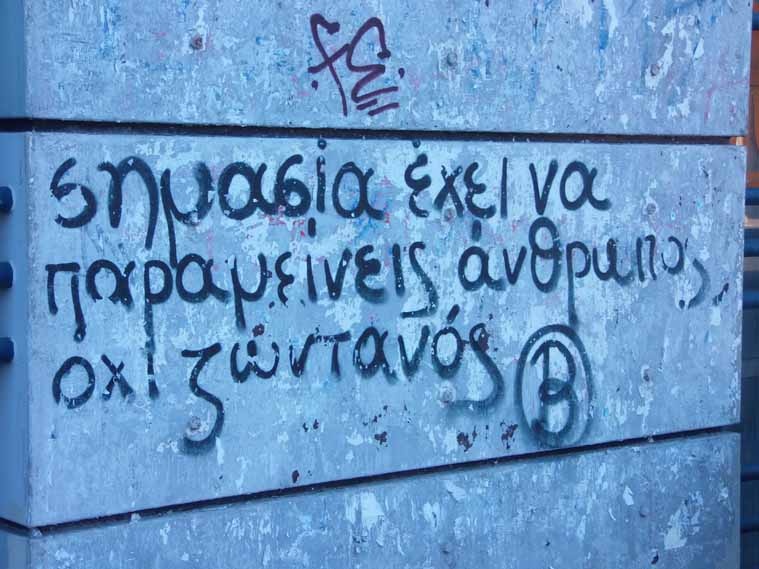 ςημασία έχει να
παραμείνεις άνθρωπος,
οχι ζώντανός B